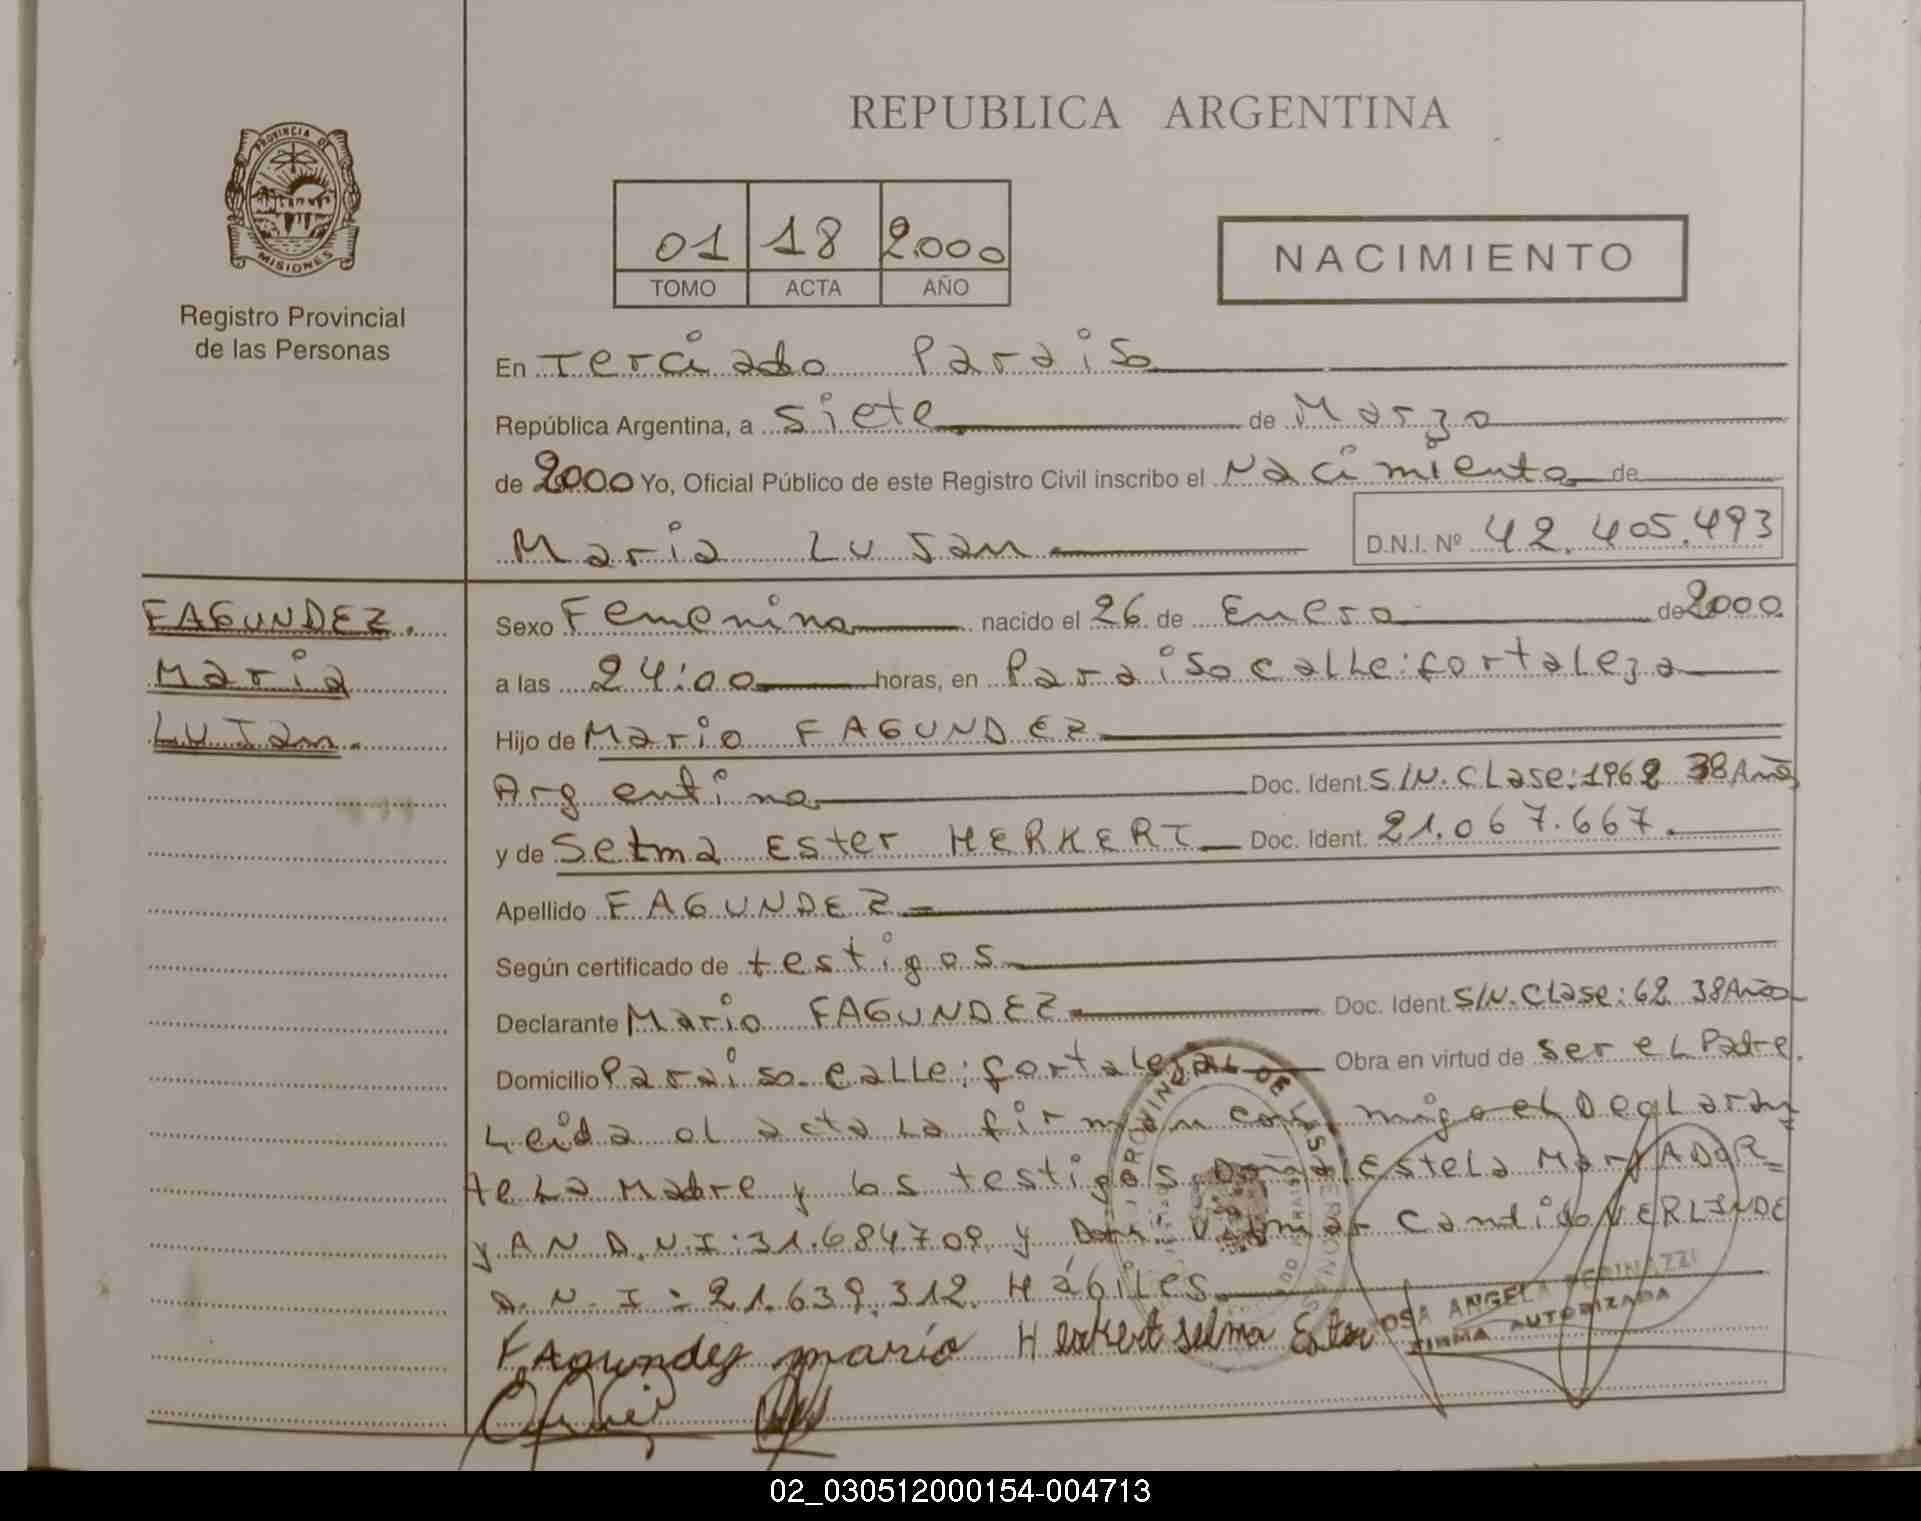 REPUBLICA ARGENTINA
PROVINCIA DE
MISIONES
Registro Provincial
de las Personas
01 18 2000
TOMO ACTA AÑO
NACIMIENTO
En Terciado Paraiso
República Argentina, a siete de Marzo
de 2000 Yo, Oficial Público de este Registro Civil inscribo el Nacimiento de
Maria Lujan D.N.I. Nº 42.405.493
FAGUNDEZ.
Maria
Lujan.
Sexo Femenino nacido el 26 de Enero de 2000
a las 24:00 horas, en Paraiso calle: fortaleza
Hijo de Mario FAGUNDEZ
Argentino Doc. Ident. S/N. Clase: 1962 38 Años
y de Selma Ester HERKERT Doc. Ident. 21.067.667.
Apellido FAGUNDEZ
Según certificado de testigos
Declarante Mario FAGUNDEZ Doc. Ident. S/N. Clase: 62 38 Años
Domicilio Paraiso. calle: fortaleza Obra en virtud de ser el Padre.
Leida el acta la firman con migo el Declaran
te La Madre y los testigos Doña Estela Mar
y AN D.N.I: 31.684709 y Don: Candido VERLINDE
D.N.I: 21.639.312. Hábiles.
Fagundez mario Herkert Selma Ester
ANGELA
FIRMA AUTORIZADA
02_030512000154-004713